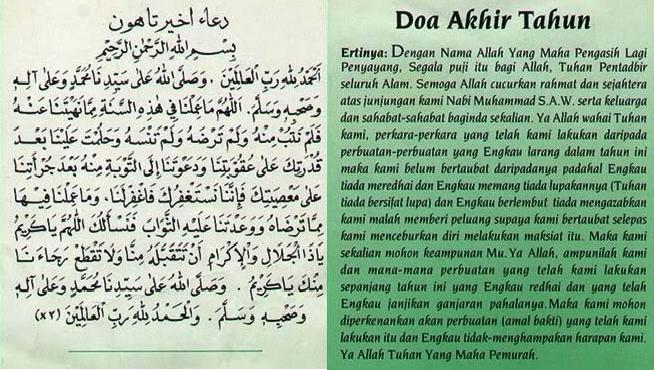 دعاء اخير تاهون
بِسْمِ اللهِ الرَّحْمٰنِ الرَّحِيْمِ
اَلْحَمْدُ لِلّٰهِ رَبِّ الْعَالَمِيْنَ . وَصَلَّى اللهُ عَلَى سَيِّدِنَا مُحَمَّدٍ وَعَلَى آلِهِ
وَصَحْبِهِ وَسَلَّمَ . اَللّٰهُمَّ مَا عَمِلْنَا فِي هٰذِهِ السَّنَةِ مِمَّا نَهَيْتَنَا عَنْهُ
فَلَمْ نَتُبْ مِنْهُ وَلَمْ تَرْضَهُ وَلَمْ تَنْسَهُ وَحَلُمْتَ عَلَيْنَا بَعْدَ
قُدْرَتِكَ عَلَى عُقُوْبَتِنَا وَدَعَوْتَنَا إِلَى التَّوْبَةِ مِنْهُ بَعْدَ جُرْأَتِنَا
عَلَى مَعْصِيَتِكَ فَإِنَّنَا نَسْتَغْفِرُكَ فَاغْفِرْلَنَا ، وَمَا عَمِلْنَا فِيْهَا
مِمَّا تَرْضَاهُ وَوَعَدْتَنَا عَلَيْهِ الثَّوَابَ فَنَسْأَلُكَ اللّٰهُمَّ يَا كَرِيْمُ
يَاذَا الْجَلَالِ وَالْإِكْرَامِ أَنْ تَتَقَبَّلَهُ مِنَّا وَلَا تَقْطَعْ رَجَاءَنَا
مِنْكَ يَا كَرِيْمُ . وَصَلَّى اللهُ عَلَى سَيِّدِنَا مُحَمَّدٍ وَعَلَى آلِهِ
وَصَحْبِهِ وَسَلَّمَ . وَالْحَمْدُ لِلّٰهِ رَبِّ الْعَالَمِيْنَ (٣×)
Doa Akhir Tahun
Ertinya: Dengan Nama Allah Yang Maha Pengasih Lagi
Penyayang, Segala puji itu bagi Allah, Tuhan Pentadbir
seluruh Alam. Semoga Allah cucurkan rahmat dan sejahtera
atas junjungan kami Nabi Muhammad S.A.W. serta keluarga
dan sahabat-sahabat baginda sekalian. Ya Allah wahai Tuhan
kami, perkara-perkara yang telah kami lakukan daripada
perbuatan-perbuatan yang Engkau larang dalam tahun ini
maka kami belum bertaubat daripadanya padahal Engkau
tiada meredhai dan Engkau memang tiada lupakannya (Tuhan
tiada bersifat lupa) dan Engkau berlembut tiada mengazabkan
kami malah memberi peluang supaya kami bertaubat selepas
kami menceburkan diri melakukan maksiat itu. Maka kami
sekalian mohon keampunan Mu.Ya Allah, ampunilah kami
dan mana-mana perbuatan yang telah kami lakukan
sepanjang tahun ini yang Engkau redhai dan yang telah
Engkau janjikan ganjaran pahalanya. Maka kami mohon
diperkenankan akan perbuatan (amal bakti) yang telah kami
lakukan itu dan Engkau tidak-menghampakan harapan kami.
Ya Allah Tuhan Yang Maha Pemurah.